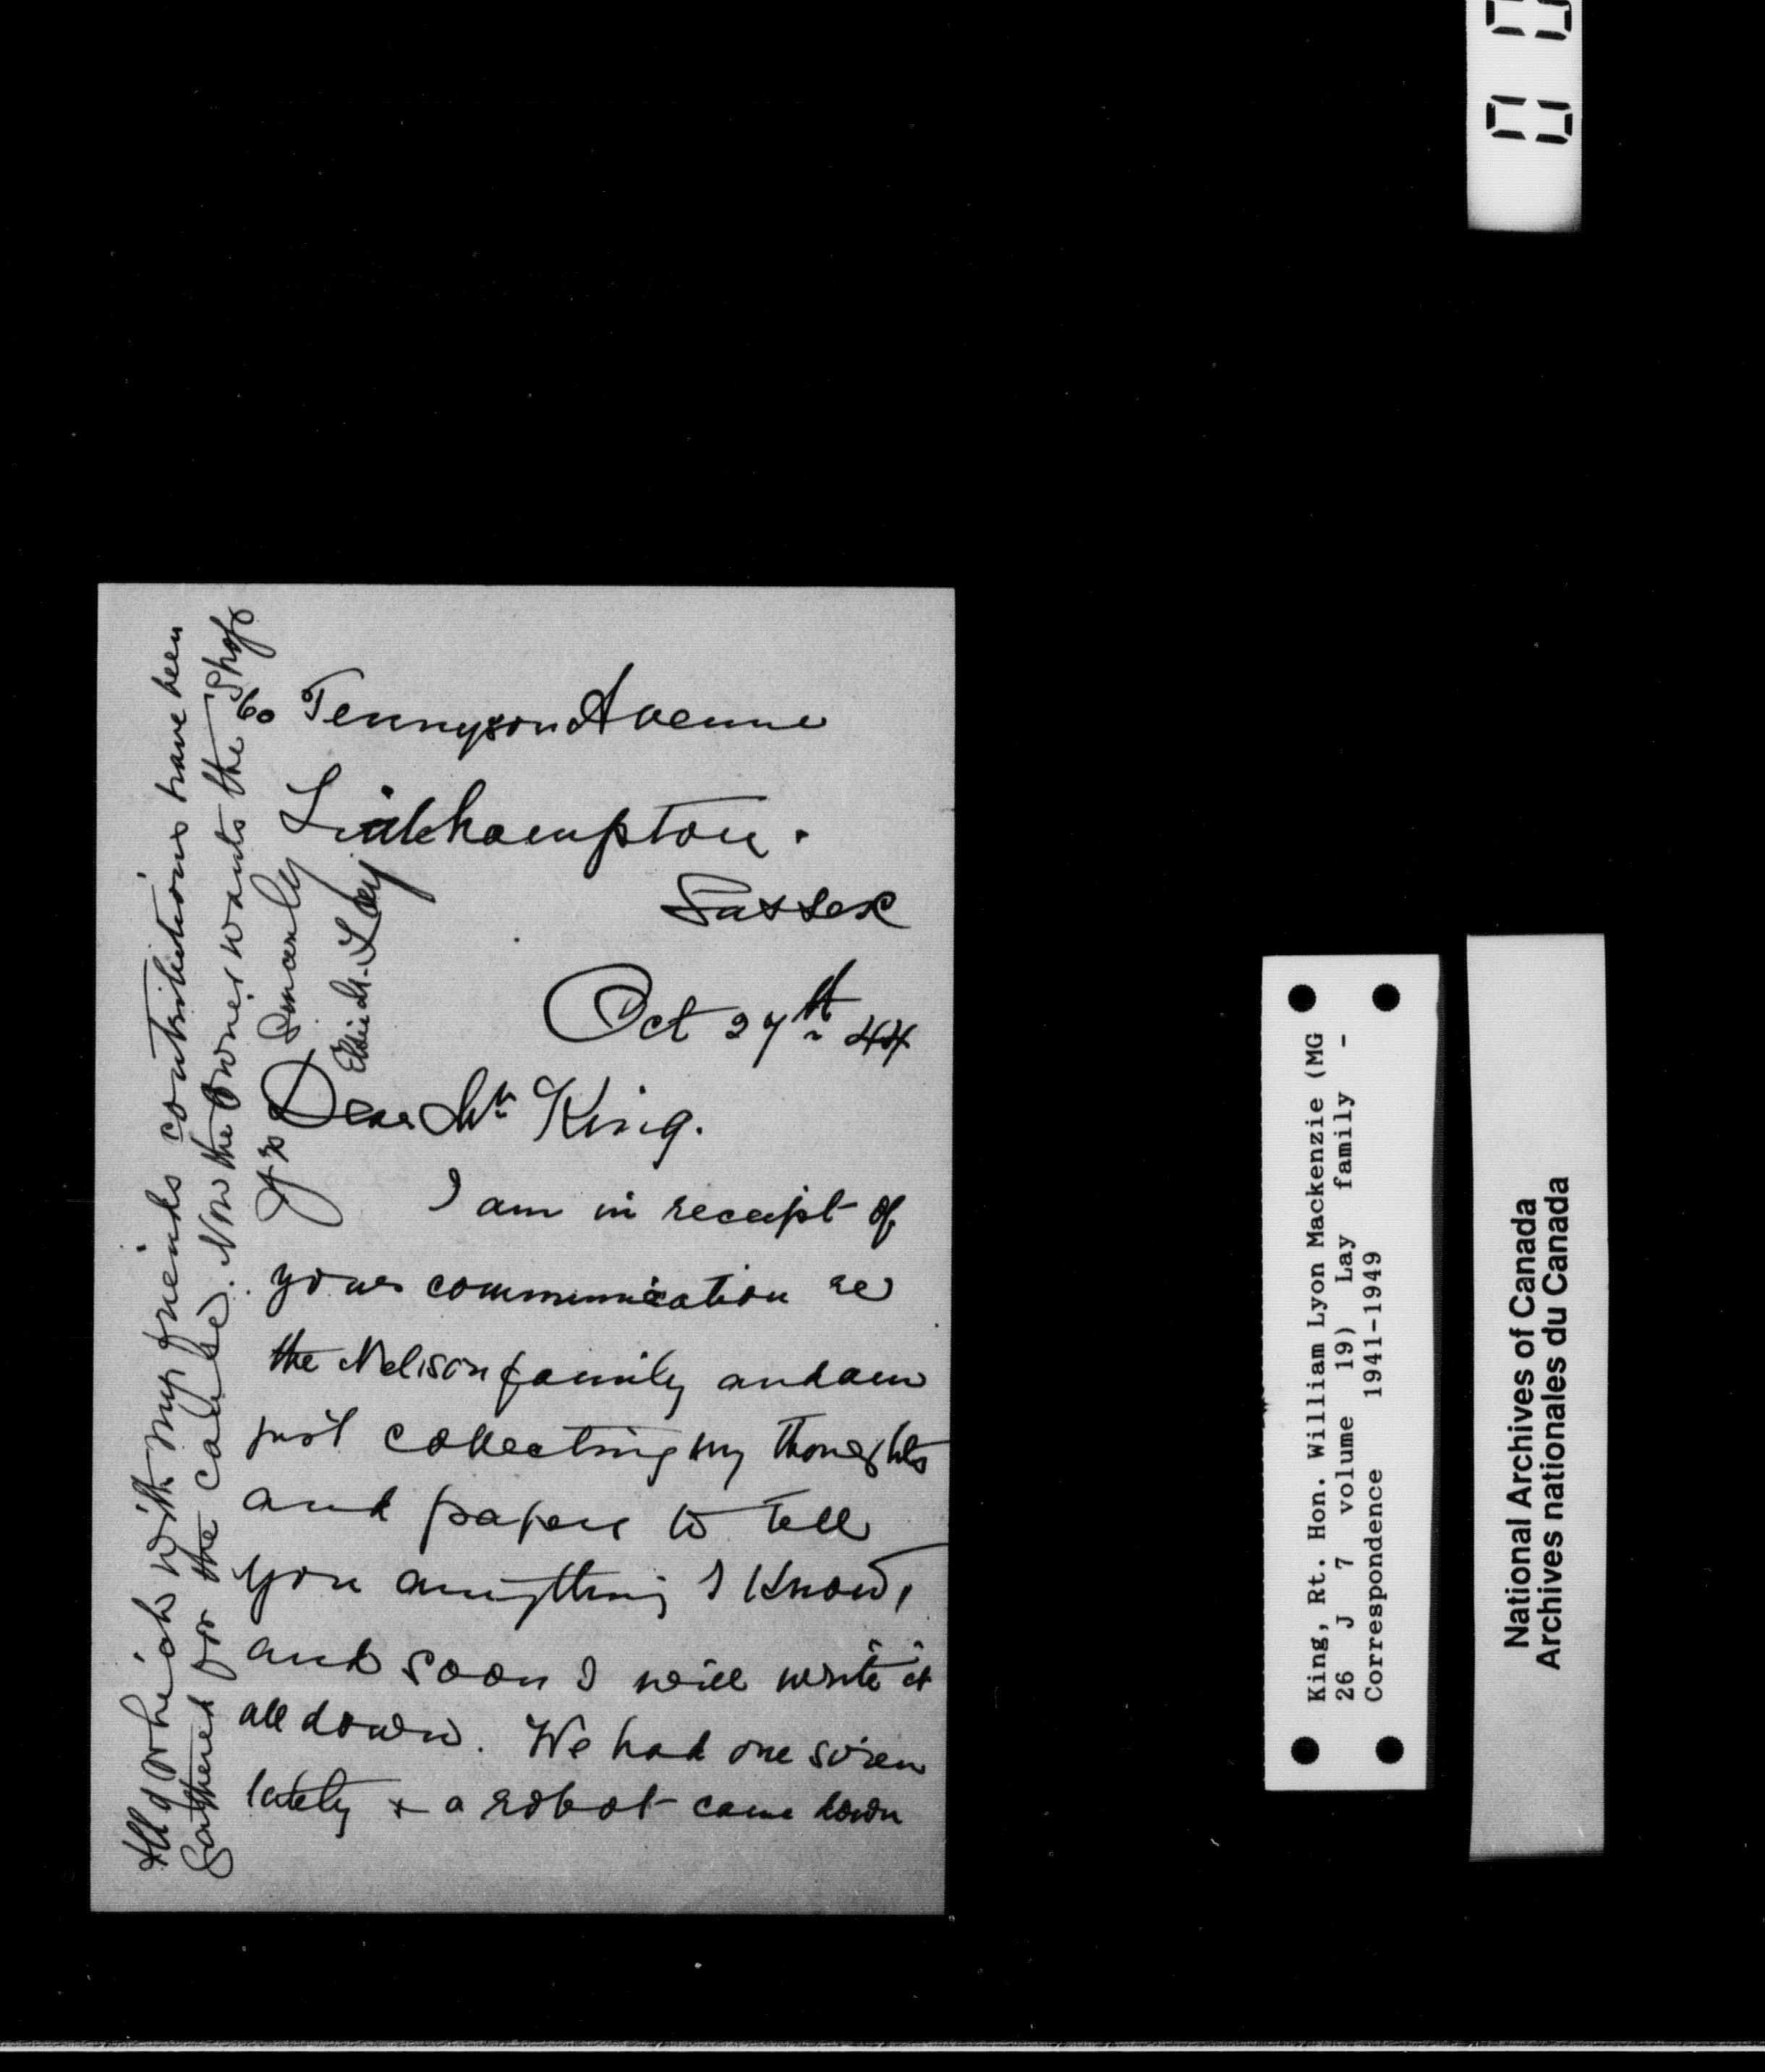 60 Tennyson Avenue
Littlehampton.
Sussex
Oct 27th 44
Dear Mr King.
I am in receipt of
your communication re
the Nelison family and am
just collecting my thoughts
and papers to tell
you anything I know,
and soon I will write it
all down. We had one siren
lately + a robot came down
All of which with my friends contributions have been
gathered for the cause. Now the owner wants the "Shop
Yrs Sincerely
Elsie M. Lay
King, Rt. Hon. William Lyon Mackenzie (MG
26 J 7 volume 19) Lay family -
Correspondence 1941-1949
National Archives of Canada
Archives nationales du Canada